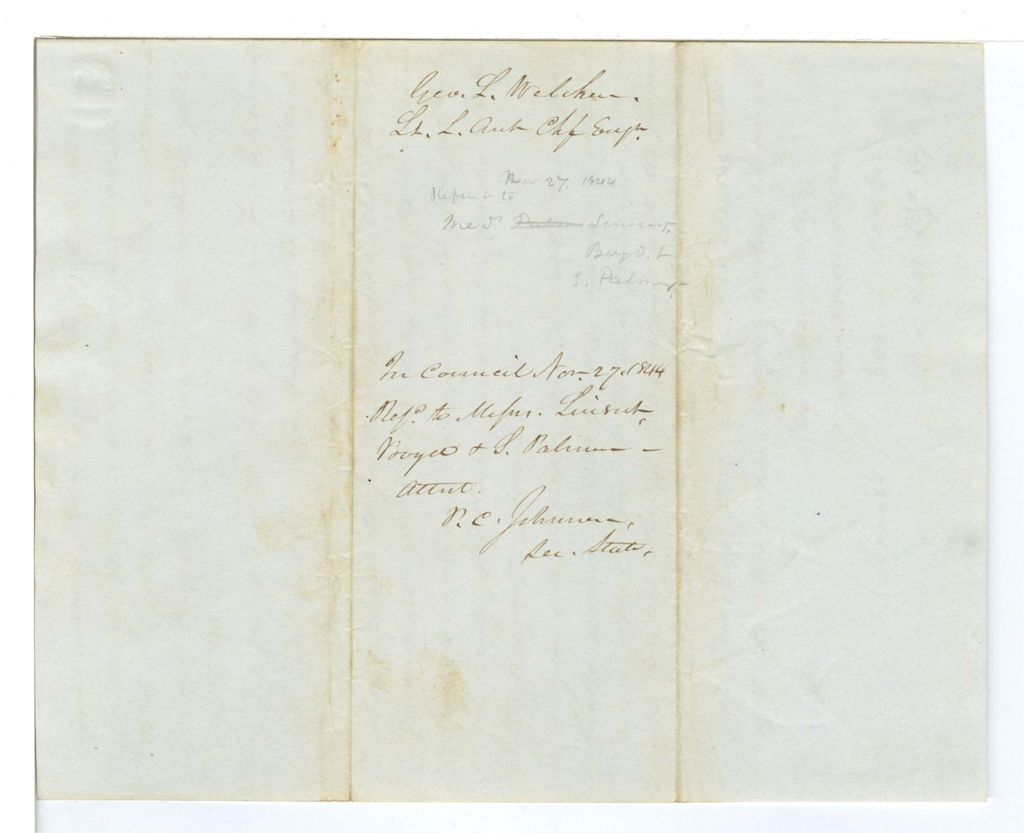 Geo. L. Welcker.
Lt. & Asst Chf Engr.
Nov 27. 1844
Refered to
Mess Linscot,
Boyd. &
S. Palmer
In Council Nov. 27. 1844
Refd. to Messrs. Linscut,
Boyd & S. Palmer
Attest.
P. C. Johnson,
Sec. State.